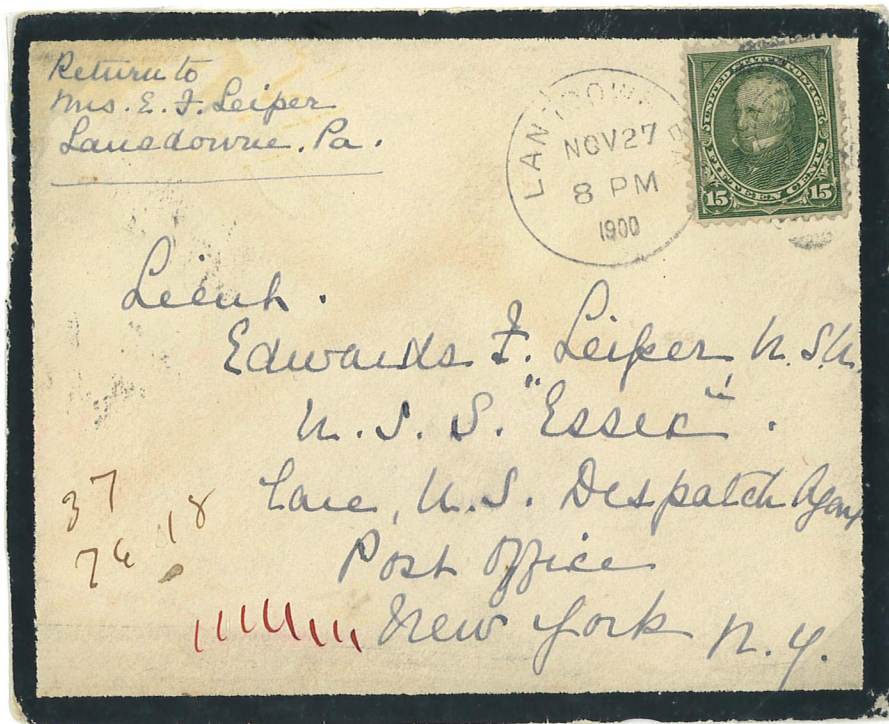 Return to
Mrs. E. F. Leiper
Lansdowne, Pa.
NOV 27
8 PM
1900
UNITED STATES POSTAGE
FIFTEEN CENTS
15 15
Lieut.
Edwards F. Leiper, U.S.N.
U. S. S. "Essex".
Care, U. S. Despatch Agent
Post Office
New York N. Y.
37
76 18